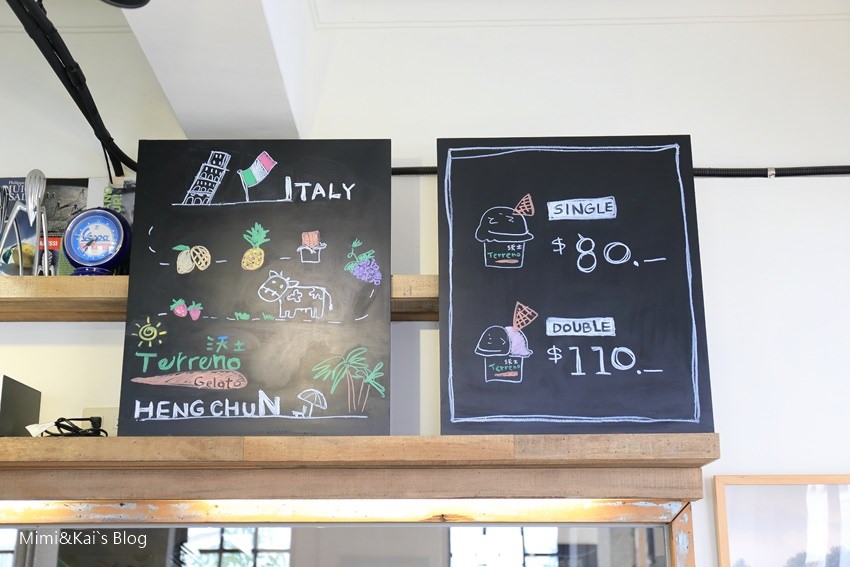 ITALY
沃土
Terreno
Gelato
HENG CHUN
SINGLE
沃土
Terreno
$80.—
DOUBLE
沃土
Terreno
$110.—
Vespa
Mimi&Kai`s Blog